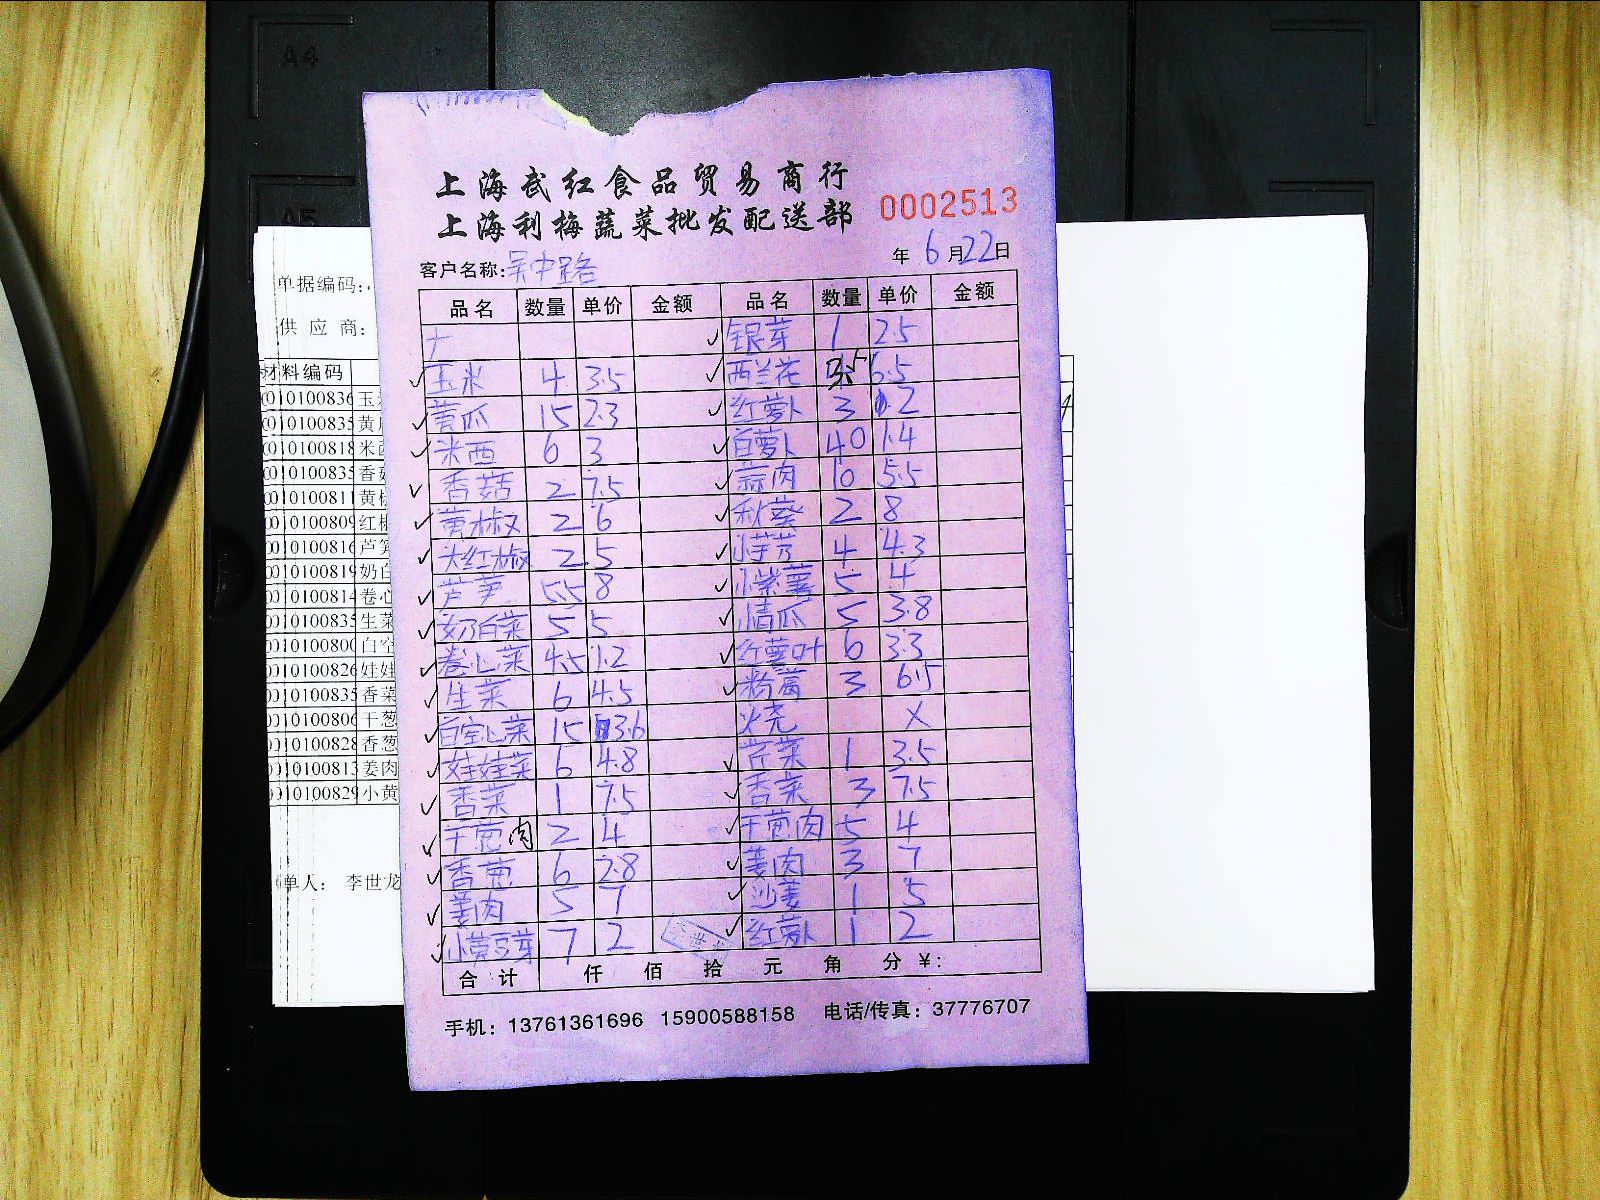 A4
A5
上海武红食品贸易商行
上海利梅蔬菜批发配送部
0002513
年 6月22日
客户名称:吴中路
品名 数量 单价 金额 品名 数量 单价 金额
十 银芽 1 2.5
玉米 4 3.5 西兰花 6.5
黄瓜 15 2.3 红萝卜 3 2
米西 6 3 白萝卜 40 1.4
香菇 2 7.5 蒜肉 10 5.5
黄椒 2 6 秋葵 2 8
大红椒 2 5 小芋艿 4 4.3
芦笋 5.5 8 小紫薯 5 4
奶白菜 5 5 青瓜 5 3.8
卷心菜 4.5 1.2 红萝叶 6 3.3
生菜 6 4.5 粉葛 3 6.5
白空心菜 15 3.6 火烧 X
娃娃菜 6 4.8 芹菜 1 3.5
香菜 1 7.5 香菜 3 7.5
干葱肉 2 4 干葱肉 5 4
香葱 6 2.8 姜肉 3 7
姜肉 5 7 沙姜 1 5
小黄豆芽 7 2 红萝卜 1 2
合计 仟 佰 拾 元 角 分 ¥:
手机: 13761361696 15900588158 电话/传真: 37776707
单据编码:
供应商:
材料编码
010100836 玉
010100835 黄
010100818 米西
010100835 香菇
010100811 黄椒
010100809 红椒
010100816 芦笋
010100819 奶白
010100814 卷心
010100835 生菜
010100800 白空
010100826 娃娃
010100835 香菜
010100806 干葱
010100828 香葱
010100813 姜肉
010100829 小黄
单人: 李世龙